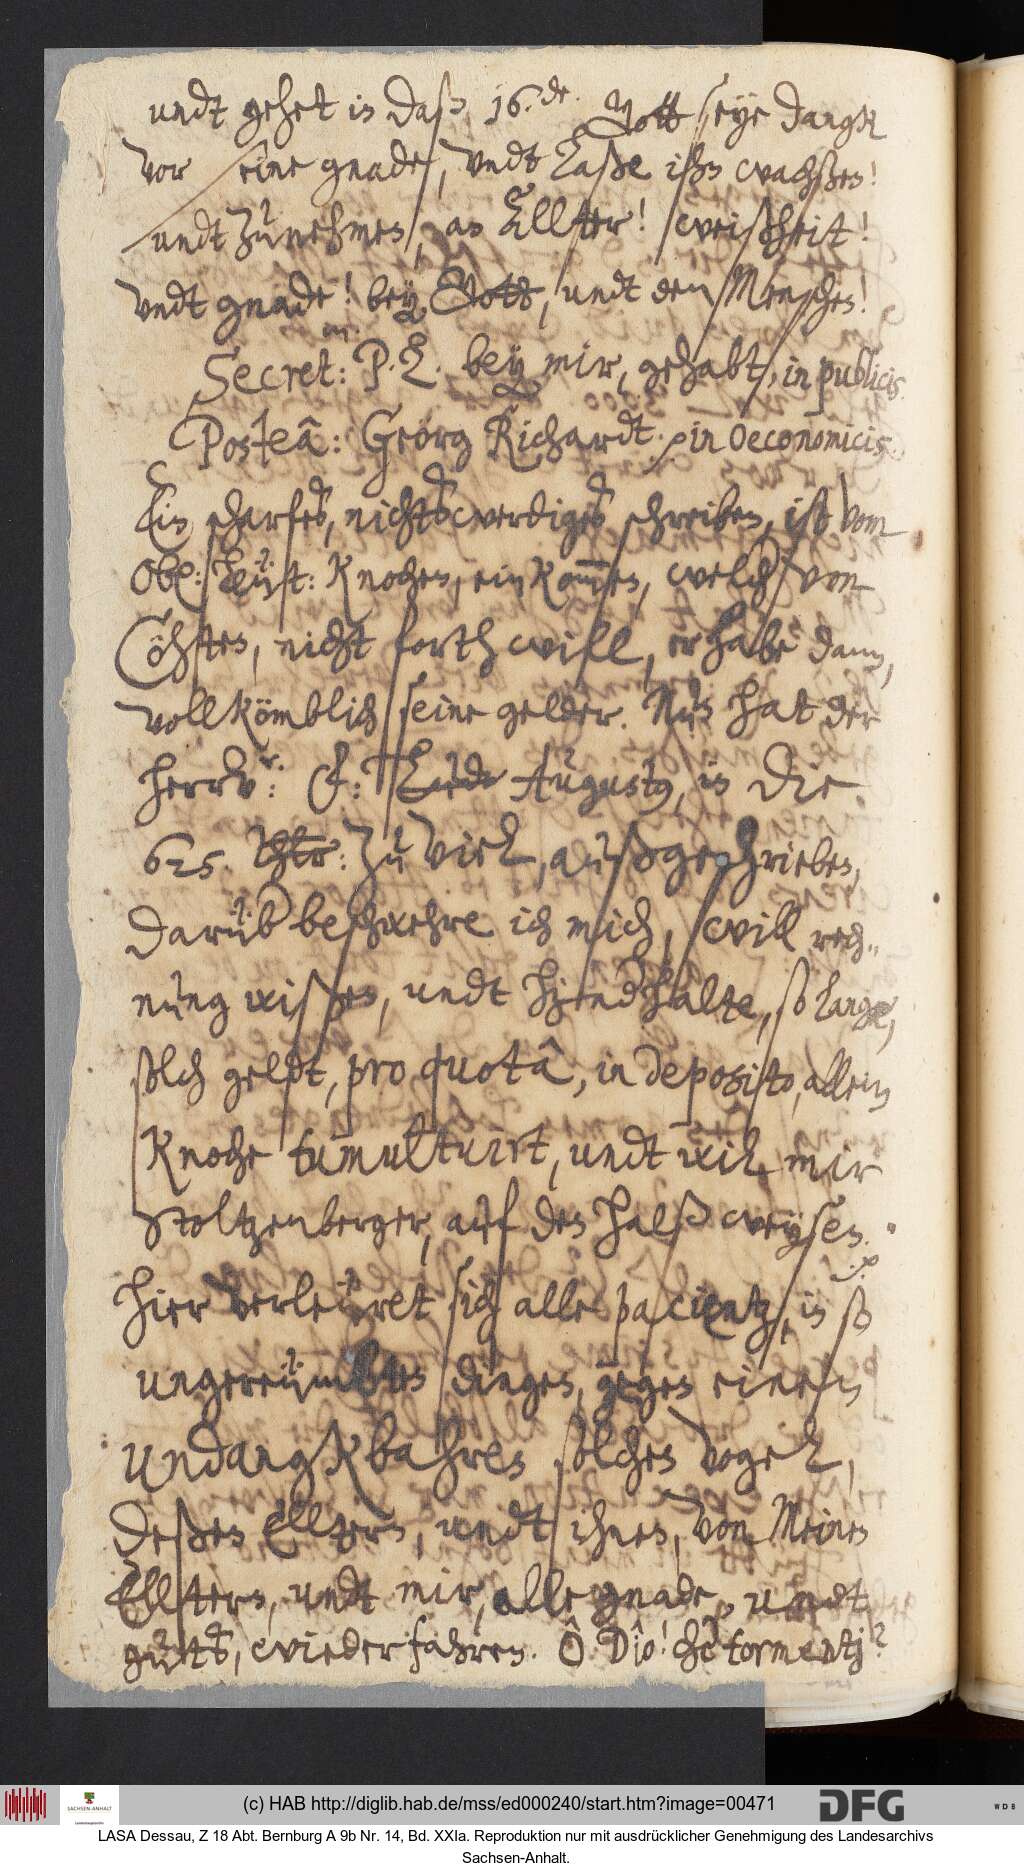 undt gehet in daß 16.de. Gott seye dangk
vor seine gnade, undt laße ihn wachßen!
undt zunehmen, an Ellter! weißheit!
undt gnade! bey Gott, undt den Menschen!
Secret: P.L. bey mir, gehabt, in publicis
Posteâ: Georg Richardt. in Oeconomicis
Ein scharfes, nichtswerdiges schreiben, ist vom
Obr: Leut: Knochen, einkommen, welcher von
Cöhten, nicht forth will, er habe dann,
vollkömblich seine gelder. Nun hat der
herr v: F: Augustus, in die
625. Thlr: zu viel, außgeschrieben,
darüber beschwehre ich mich, will rech-
nung wißen, undt hinderhalte, so lange,
solch geldt, pro quotâ, in deposito, allein
Knoche tumultuirt, undt will mir
Stoltzenberger, auf den halß weysen.
hier verleüret sich alle pacientz, in so
ungereümbten dingen, gegen einem
undangkbahren solchen vogel,
deßen Elltern, undt ihnen, von Meinen
Elltern, undt mir, alle gnade, undt
guts, wiederfahren. Ô Dio! che tormentj?
(c) HAB http://diglib.hab.de/mss/ed000240/start.htm?image=00471
SACHSEN-ANHALT
DFG
WDB
LASA Dessau, Z 18 Abt. Bernburg A 9b Nr. 14, Bd. XXIa. Reproduktion nur mit ausdrücklicher Genehmigung des Landesarchivs
Sachsen-Anhalt.